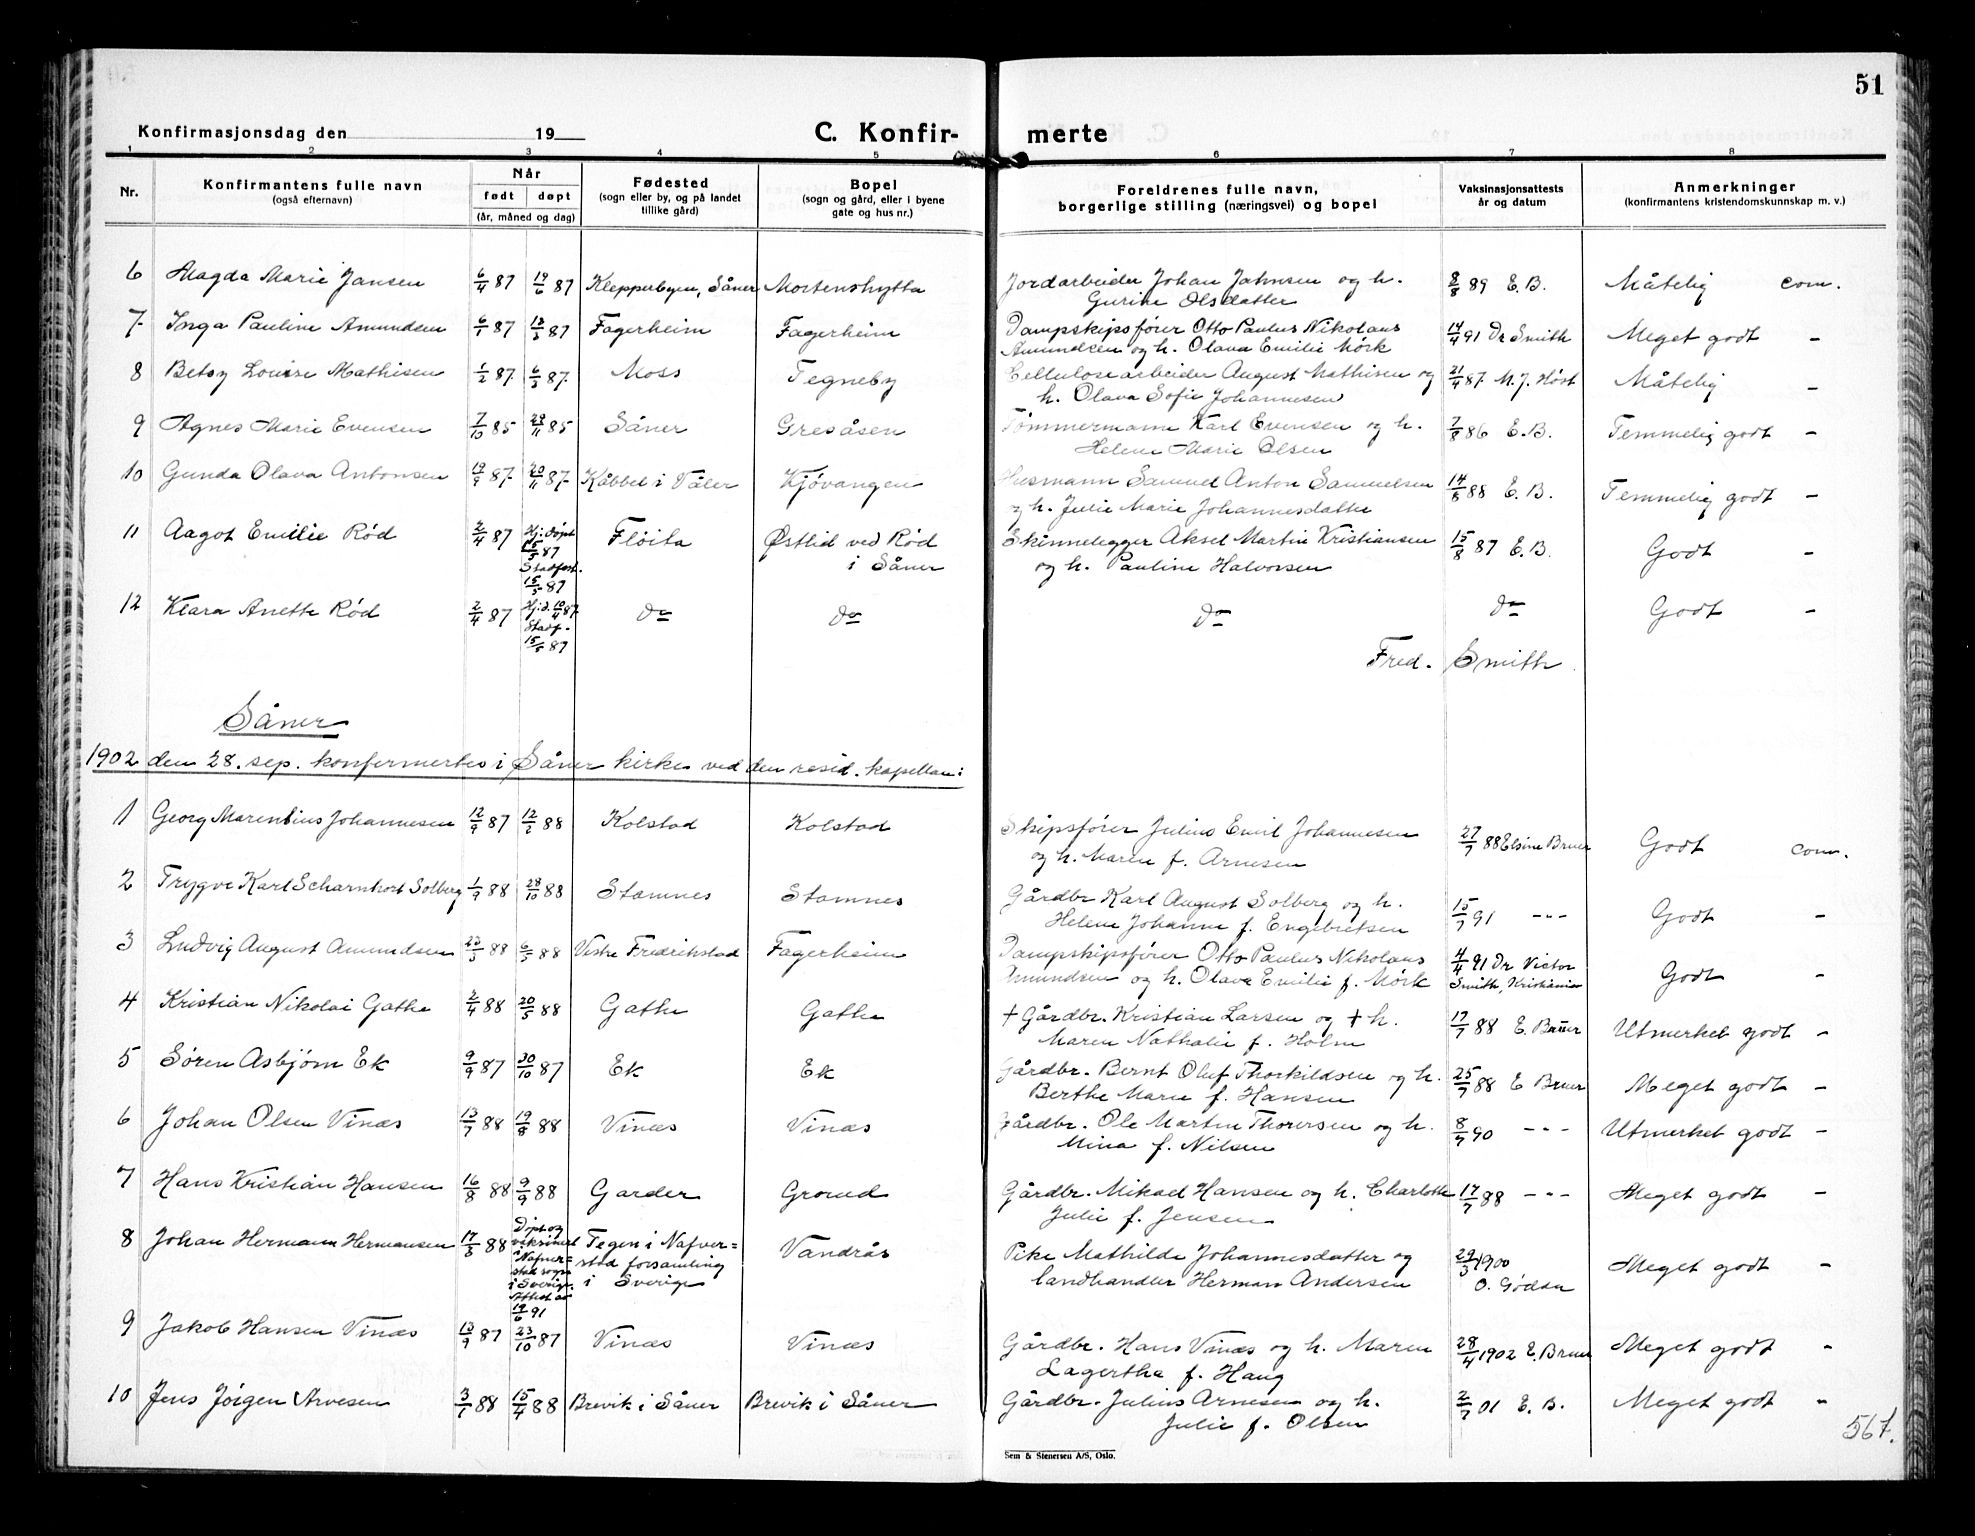 51
Konfirmasjonsdag den 19 C. Konfir- merte
1 2 3 4 5 6 7 8
Nr. Konfirmantens fulle navn (også efternavn) Når født døpt (år, måned og dag) Fødested (sogn eller by, og på landet tillike gård) Bopel (sogn og gård, eller i byene gate og hus nr.) Foreldrenes fulle navn, borgerlige stilling (næringsvei) og bopel Vaksinasjonsattests år og datum Anmerkninger (konfirmantens kristendomskunnskap m. v.)
6 Magda Marie Jansen 6/4 87 19/6 87 Klepperbyen, Såner Mortenshytta Jordarbeider Johan Jahnsen og h. Gurine Olsdatter 8/8 89 E.B. Måtelig com.
7 Inga Pauline Amundsen 6/1 87 13/3 87 Fagerheim Fagerheim Dampskipsfører Otto Paulus Nikolaus Amundsen og h. Olava Emilie Mørk 14/4 91 Dr Smith Meget godt -
8 Betsy Louise Mathisen 1/2 87 6/3 87 Moss Tegneby Cellulosearbeider August Mathisen og h. Olava Sofie Johannesen 21/4 87 M. J. Høst Måtelig -
9 Agnes Marie Evensen 7/10 85 29/11 85 Såner Gresåsen Tømmermann Karl Evensen og h. Helene Marie Olsen 7/8 86 E.B. Temmelig godt -
10 Gunda Olava Antonsen 19/9 87 20/11 87 Kåbbel i Våler Kjøvangen Husmann Samuel Anton Samuelsen og h. Julie Marie Johannesdatte 14/8 88 E.B. Temmelig godt -
11 Aagot Emilie Rød 2/4 87 Hj. døpt 15/5 87 Stadfest. 15/5 87 Fløita Østlid ved Rød i Såner Skinnelegger Aksel Martin Kristiansen og h. Pauline Halvorsen 15/8 87 E.B. Godt -
12 Klara Anette Rød 2/4 87 Hj. d. 10/4 87 Stadf. 15/5 87 do do do do Godt -
Fred. Smith
Såner
1902 den 28. sep. konfermertes i Såner kirke ved den resid. kapellan:
1 Georg Marentius Johannesen 12/9 87 12/2 88 Kolstad Kolstad Skipsfører Julius Emil Johannesen og h. Maren f. Arnesen 27/7 88 Elsine Bruer Godt com.
2 Trygve Karl Scharnhort Solberg 1/9 88 28/10 88 Stamnes Stamnes Gårdbr Karl August Solberg og h. Helene Johanne f. Engebretsen 15/7 91 --- Godt -
3 Ludvig August Amundsen 23/3 88 6/5 88 Vestre Fredrikstad Fagerheim Dampskipsfører Otto Paulus Nikolaus Amundsen og h. Olava Emilie f. Mørk 4/4 91 Dr Victor Smith, Kristiania Godt -
4 Kristian Nikolai Gathe 2/4 88 20/5 88 Gathe Gathe † Gårdbr. Kristian Larsen og † h. Maren Nathalie f. Holm 17/7 88 E. Bruer Utmerket godt -
5 Søren Asbjørn Ek 9/9 87 30/10 87 Ek Ek Gårdbr. Bernt Oluf Thorkildsen og h. Berthe Marie f. Hansen 25/7 88 E Bruer Meget godt -
6 Johan Olsen Vinæs 13/7 88 19/8 88 Vinæs Vinæs Gårdbr. Ole Martin Thoresen og h. Mina f. Nilsen 8/7 90 --- Utmerket godt -
7 Hans Kristian Hansen 16/8 88 9/9 88 Garder Grorud Gårdbr. Mikael Hansen og h. Charlotte Julie f. Jensen 17/7 88 --- Meget godt -
8 Johan Hermann Hermansen 17/3 88 Døpt og vaksinert i Nafverstad sogn i Sverige. Attest av 19/6 91 Tegen i Nafver=stad forsamling i Sverige Vandrås Pike Mathilde Johannesdatter og landhandler Herman Andersen 29/3 1900 O. Gødsen Meget godt -
9 Jakob Hansen Vinæs 13/9 87 23/10 87 Vinæs Vinæs Gårdbr. Hans Vinæs og h. Maren Lagertha f. Haug 28/4 1902 E. Bruer Meget godt -
10 Jens Jørgen Arvesen 3/1 88 15/4 88 Brevik i Såner Brevik i Såner Gårdbr. Julius Arnesen og h. Julie f. Olsen 2/7 01 E.B. Meget godt -
567.
Sem & Stenersen A/S, Oslo.